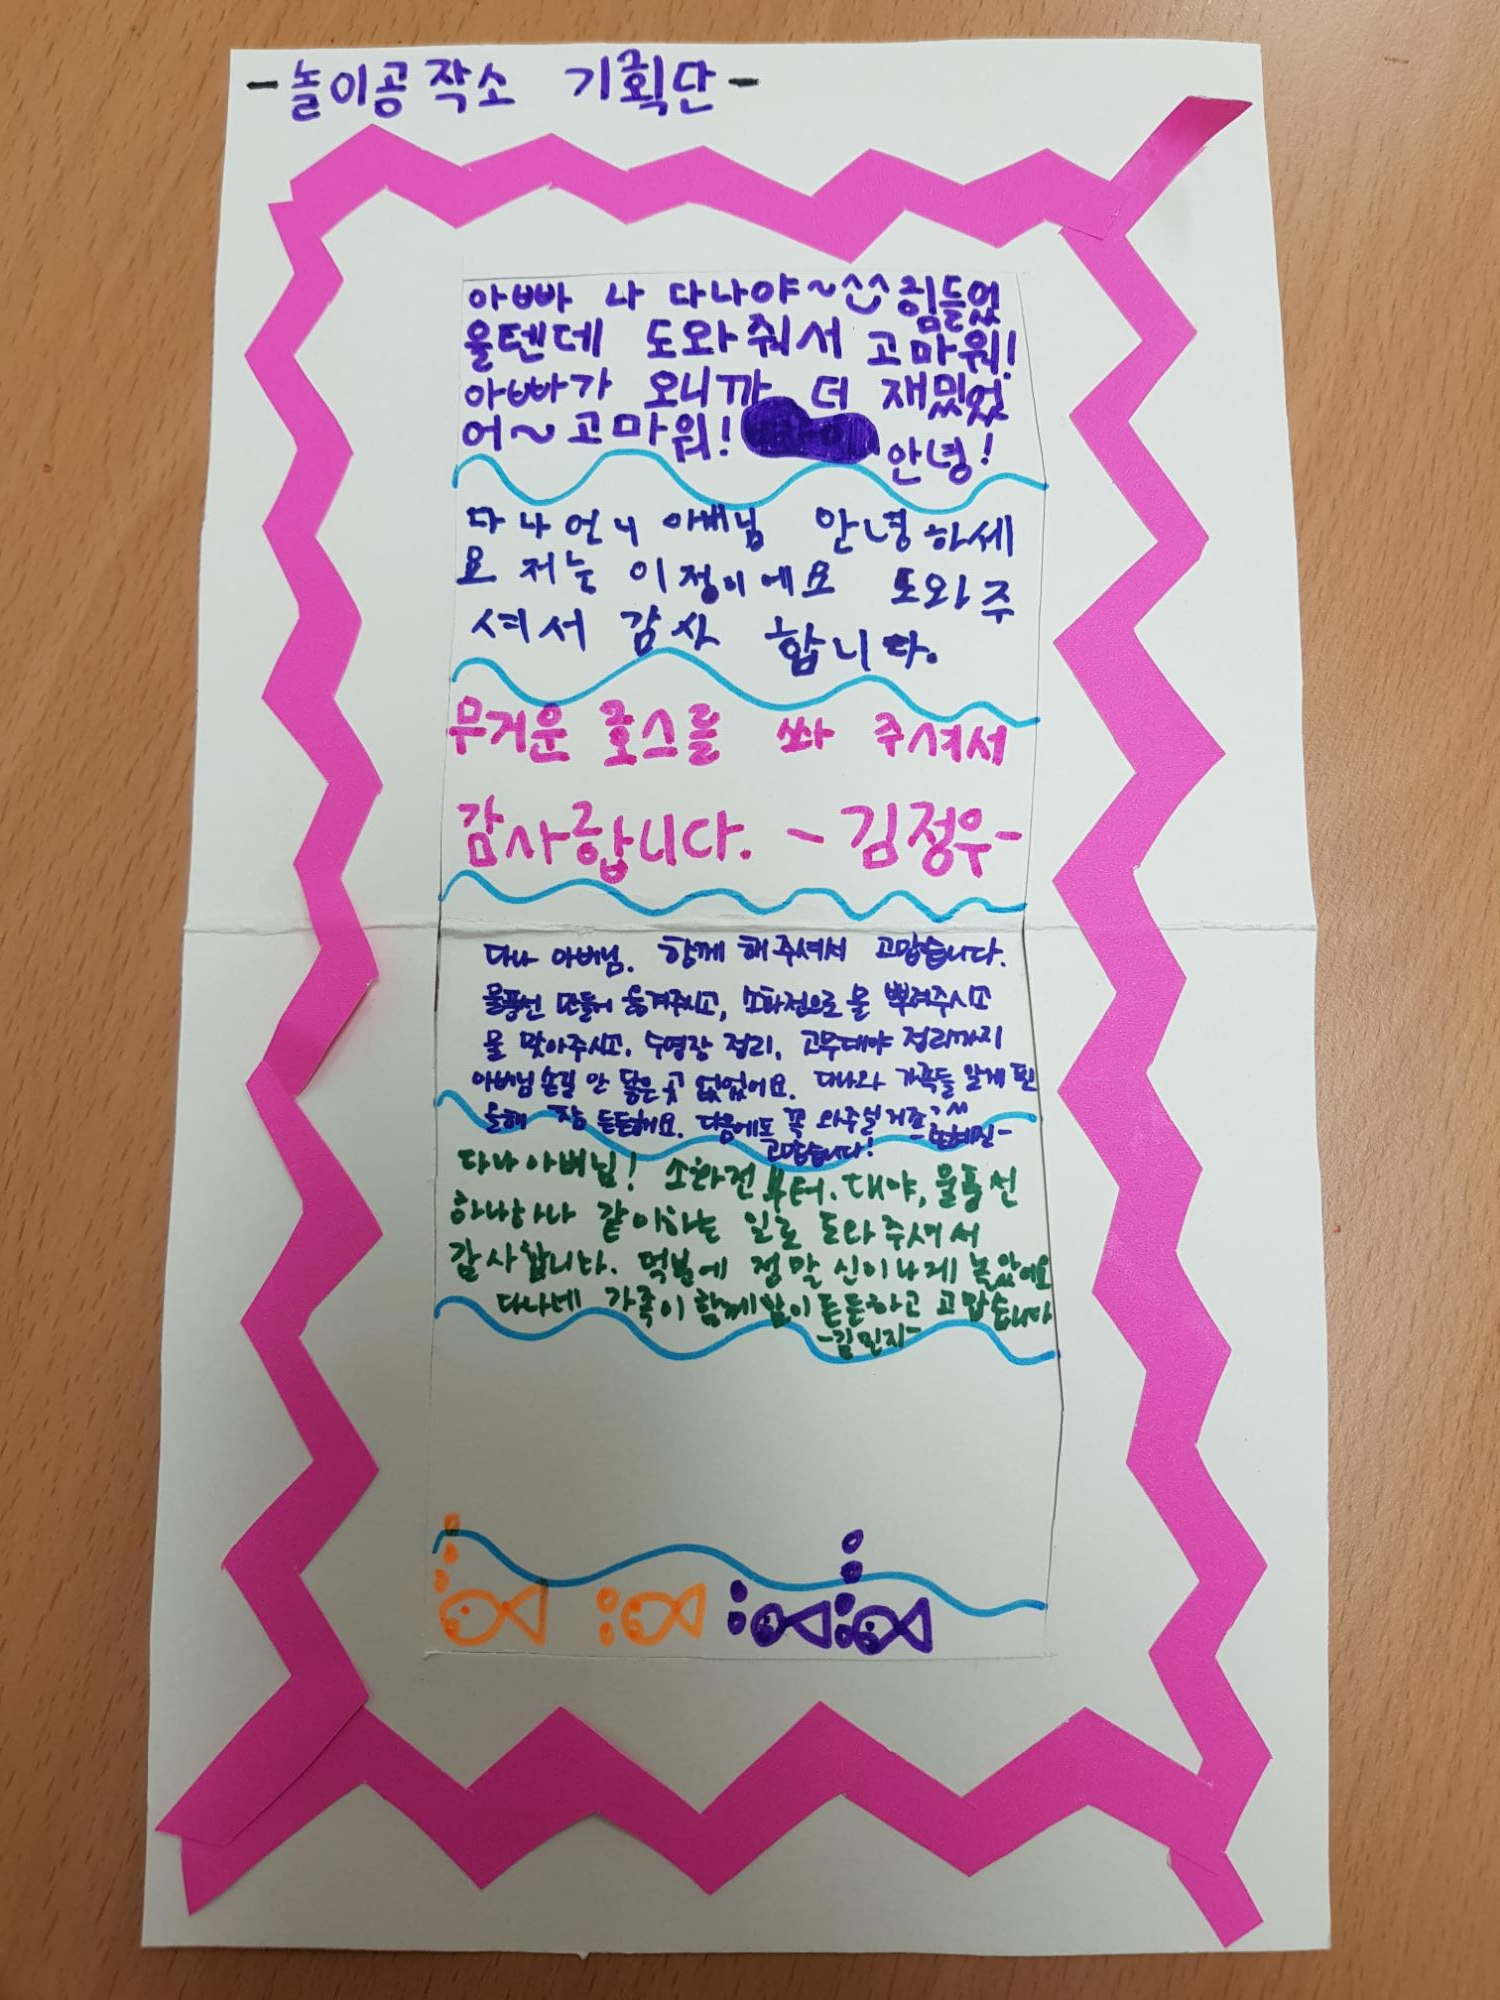 -놀이공작소 기획단-
아빠 나 다나야~^^ 힘들었
을텐데 도와줘서 고마워!
아빠가 오니까 더 재밌었
어~고마워! 안녕!
다나언니 아빠님 안녕하세
요 저는 이정이에요 도와주
셔서 감사 합니다.
무거운 호스를 쏴 주셔서
감사합니다. -김정우-
다나 아버님. 함께 해주셔서 고맙습니다.
물풍선 만들어 옮겨주시고, 소화전으로 물 뿌려주시고
물 맞아주시고. 수영장 정리, 고무대야 정리까지
아버님 손길 안 닿은 곳 없었어요. 다나와 가족들 알게 된
올해 참 든든해요. 다음에도 꼭 와주실거죠?^^
고맙습니다!
다나아버님! 소화전부터. 대야, 물풍선
하나하나 같이하는 일로 도와주셔서
감사합니다. 덕분에 정말 신이나게 놀았어요
다나네 가족이 함께함이 든든하고 고맙습니다
-김민지-